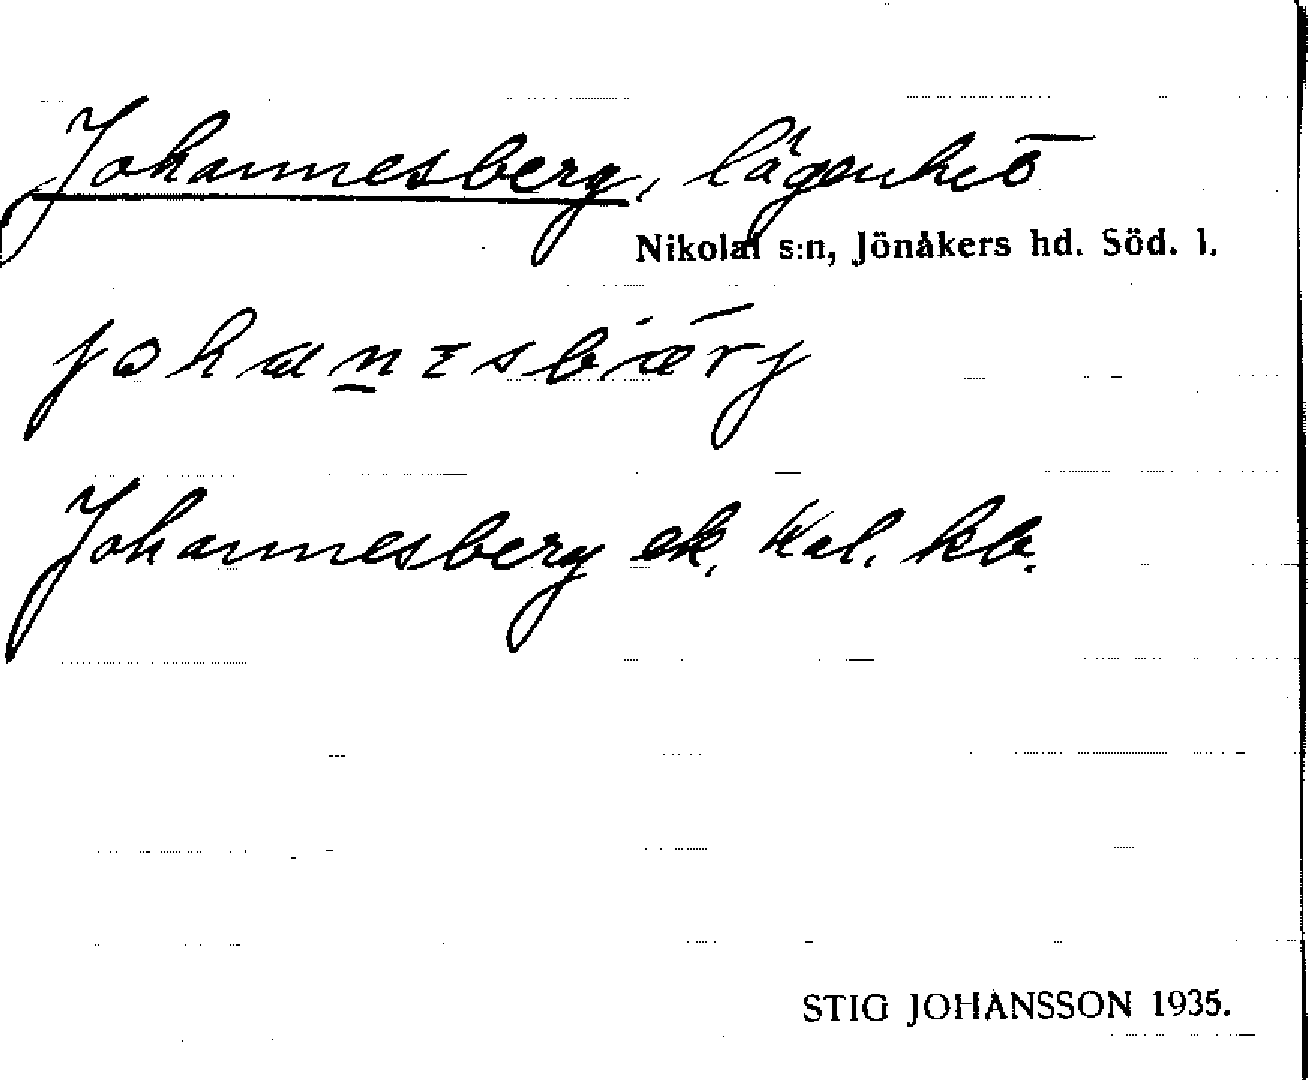 Johannesberg, lägenhet
Nikolai s:n, Jönåkers hd. Söd. l.
johanesbærj
Johannesberg ek, kb.
STIG JOHANSSON 1935.